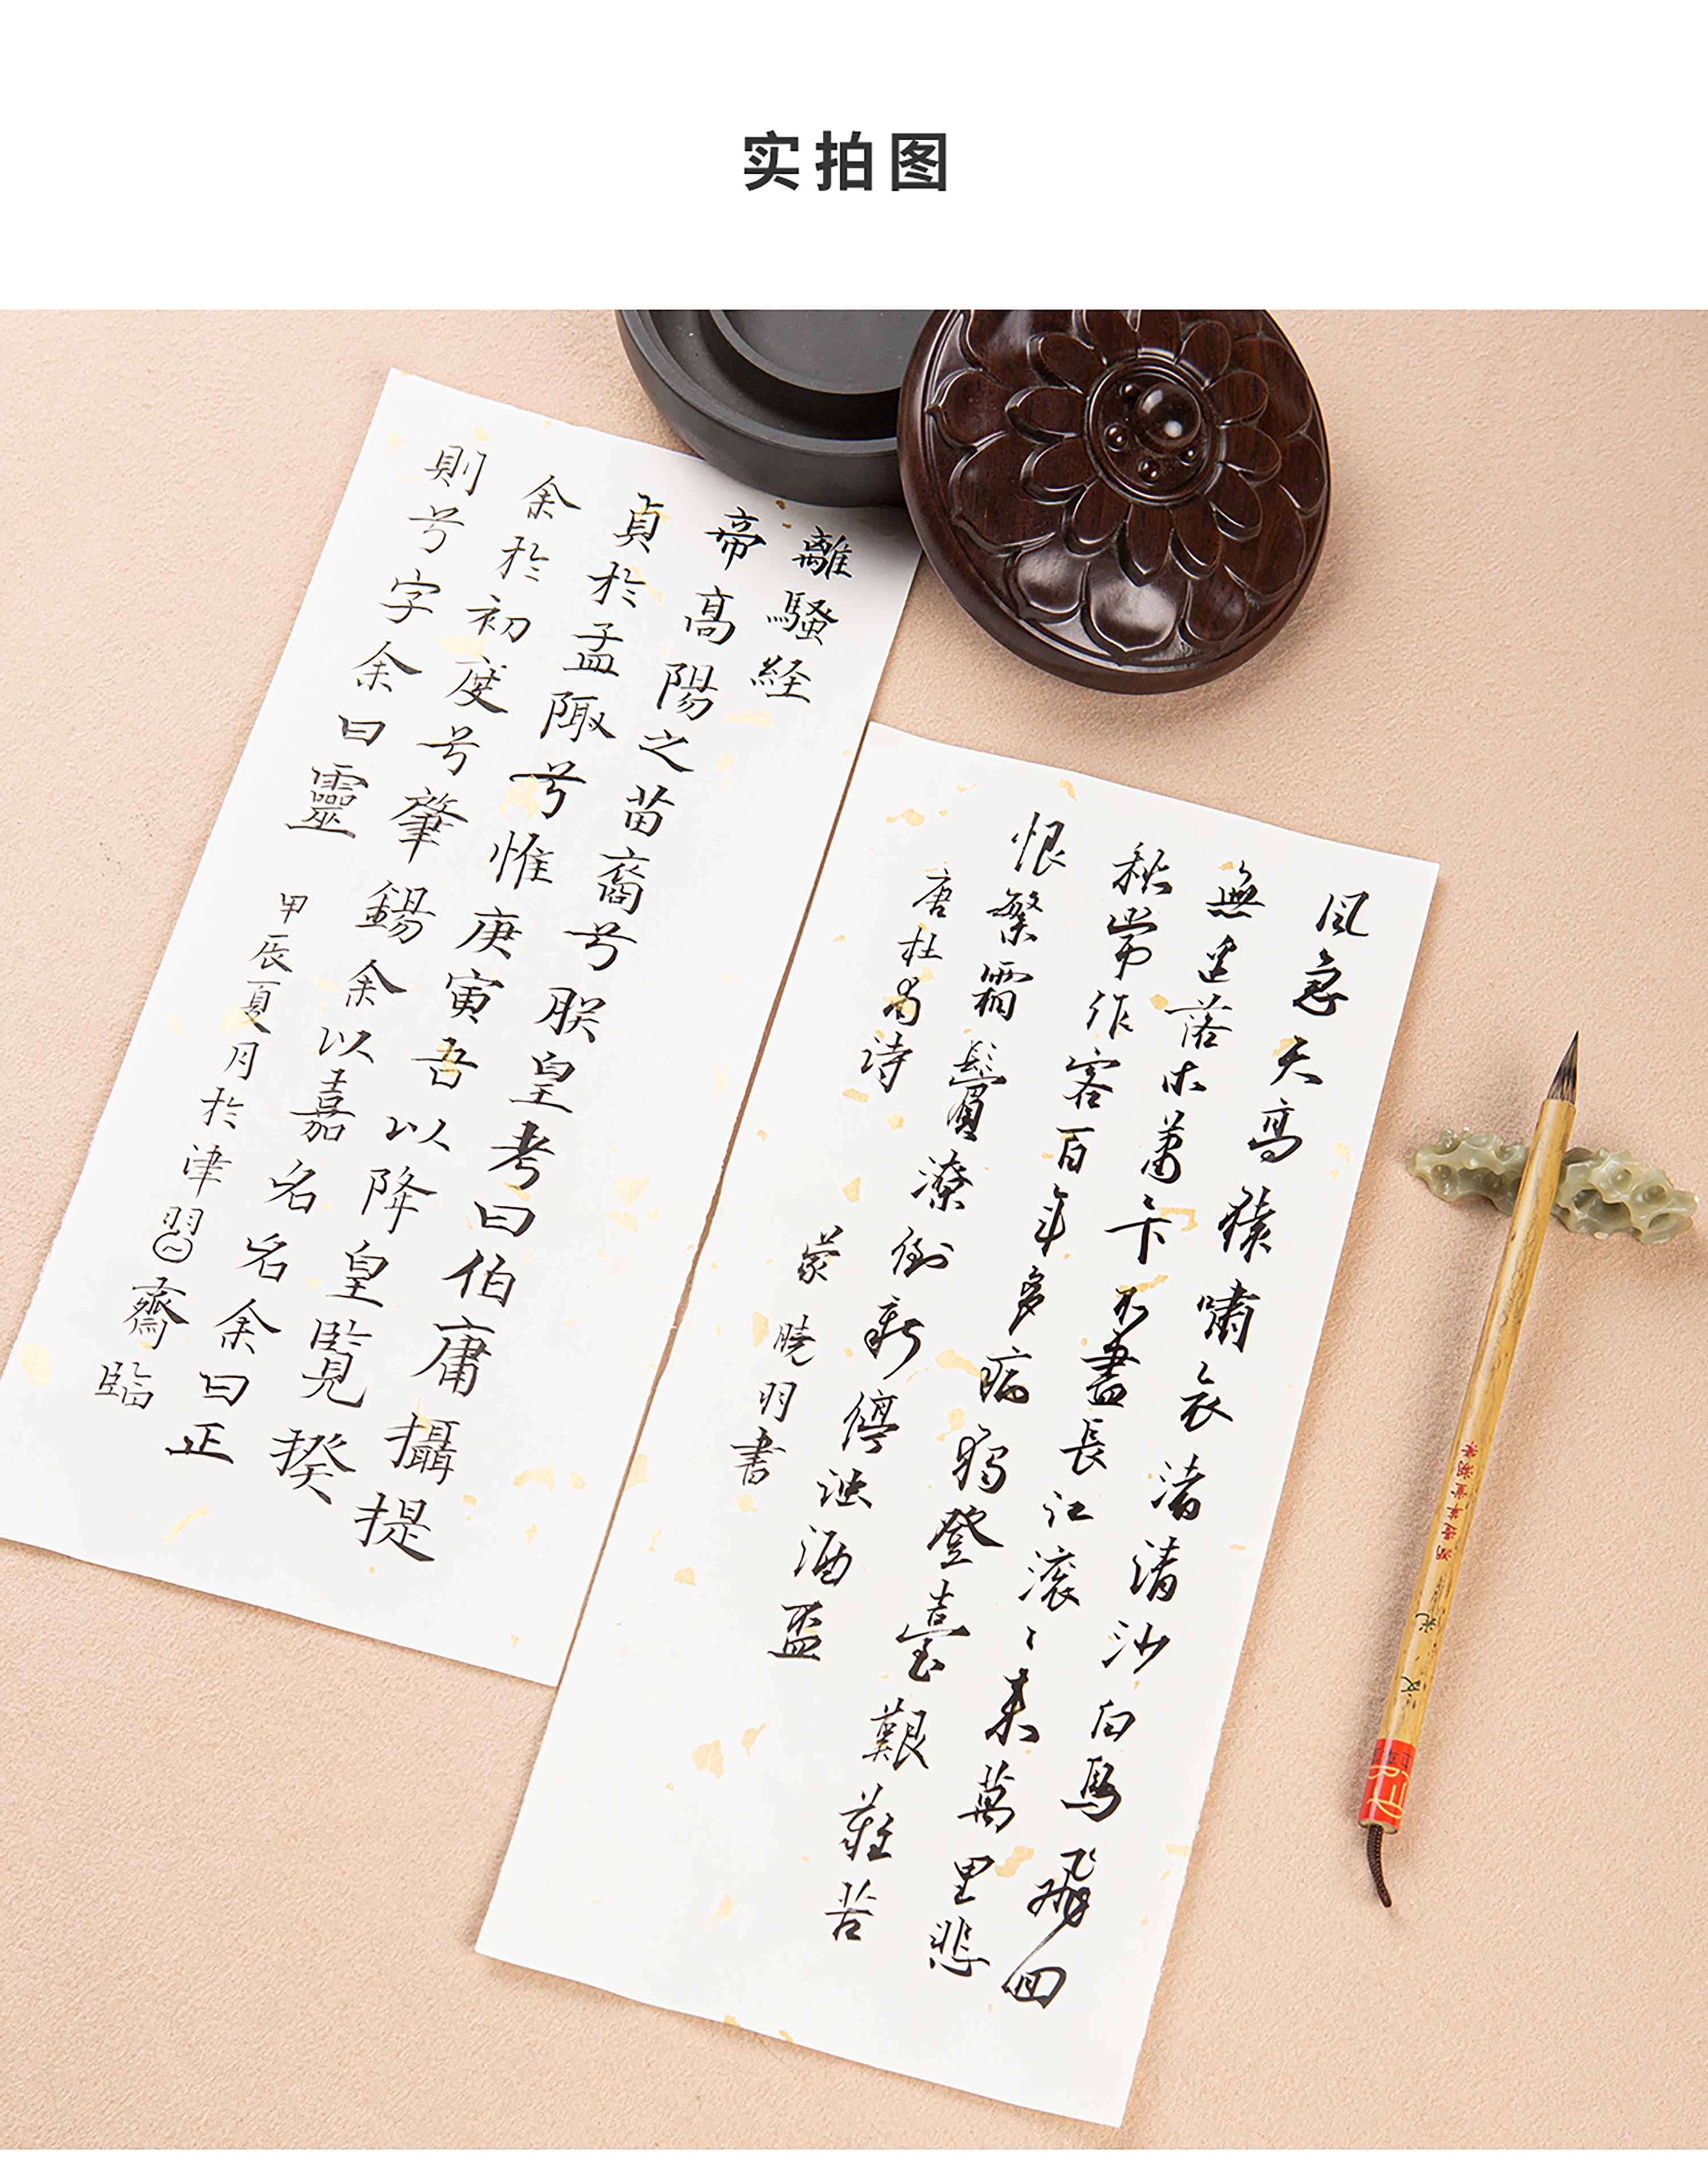 实拍图
離騷経
帝高陽之苗裔兮朕皇考曰伯庸攝提
貞於孟陬兮惟庚寅吾以降皇覽揆
余於初度兮肇錫余以嘉名名余曰正
則兮字余曰靈
甲辰夏月於津習齋臨
風急天高猿嘯哀渚清沙白鳥飛回
無邊落木蕭〻下不盡長江滚〻来萬里悲
秋常作客百年多病獨登臺艱難苦
恨繁霜鬢潦倒新停浊酒盃
唐杜甫诗
蒙曉羽書